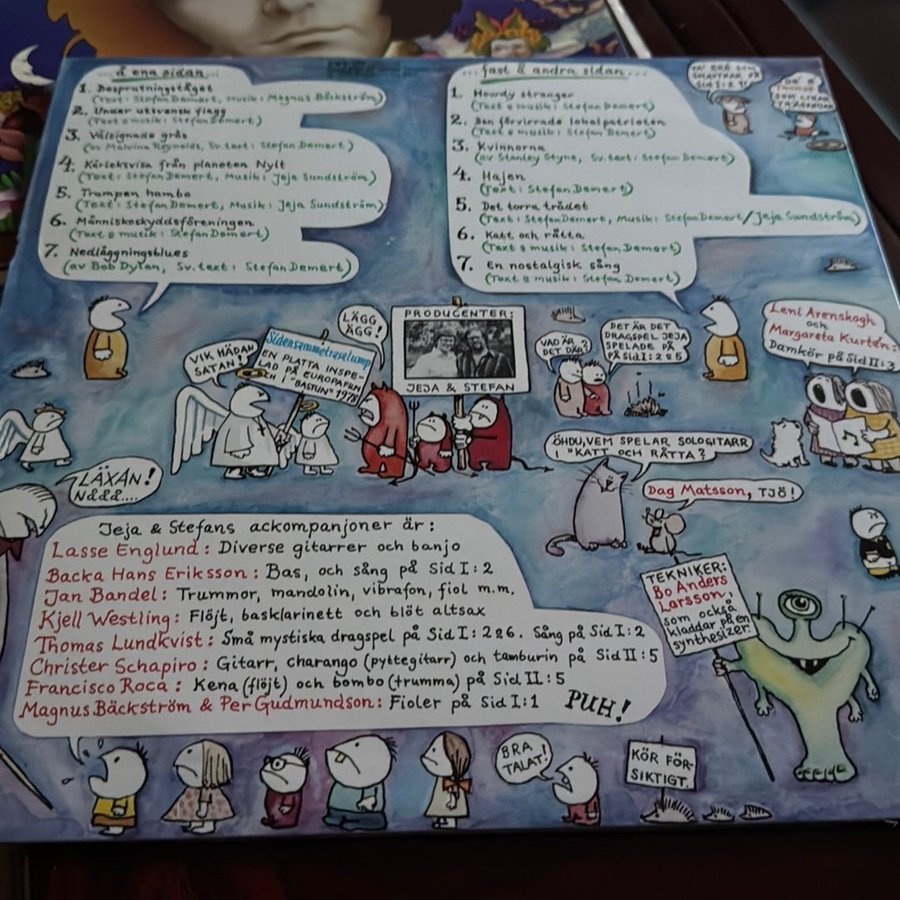 ...å ena sidan...
1. Besprutningståget
(Text: Stefan Demert, Musik: Magnus Bäckström)
2. Under utsvensk flagg
(Text & musik: Stefan Demert)
3. Välsignade gräs
(av Malvina Reynolds, Sv. text: Stefan Demert)
4. Kärleksvisa från planeten Nylt
(Text: Stefan Demert, Musik: Jeja Sundström)
5. Trumpen hambo
(Text: Stefan Demert, Musik: Jeja Sundström)
6. Människoskyddsföreningen
(Text & musik: Stefan Demert)
7. Nedläggningsblues
(av Bob Dylan, Sv. text: Stefan Demert)
...fast å andra sidan...
1. Howdy stranger
(Text & musik: Stefan Demert)
2. Den förvirrade lokalpatrioten
(Text & musik: Stefan Demert)
3. Kvinnorna
(av Stanley Styne, Sv. text: Stefan Demert)
4. Hajen
(Text: Stefan Demert)
5. Det torra trädet
(Text: Stefan Demert, Musik: Stefan Demert/Jeja Sundström)
6. Katt och råtta
(Text & musik: Stefan Demert)
7. En nostalgisk sång
(Text & musik: Stefan Demert)
SOM
SID I: 2
SOM
VIK HÄDAN
SATAN!
Sidensammetreselump
EN PLATTA INSPE-
LAD PÅ EUROPAFILM
OCH I "BASTUN" 1978
LÄGG
ÄGG!
PRODUCENTER:
JEJA & STEFAN
VAD ÄR
DET DÄR?
DET ÄR DET
DRAGSPEL JEJA
SPELADE PÅ
PÅ Sid I: 2 & 5
Leni Arenskogh
och
Margareta Kurtén:
Damkör på Sid II: 3
LÄXAN!
NÅÅÅ....
ÖHDU, VEM SPELAR SOLOGITARR
I "KATT OCH RÅTTA?
Dag Matsson, TJÖ!
Jeja & Stefans ackompanjoner är:
Lasse Englund: Diverse gitarrer och banjo
Backa Hans Eriksson: Bas, och sång på Sid I: 2
Jan Bandel: Trummor, mandolin, vibrafon, fiol m.m.
Kjell Westling: Flöjt, basklarinett och blöt altsax
Thomas Lundkvist: Små mystiska dragspel på Sid I: 2&6. Sång på Sid I: 2
Christer Schapiro: Gitarr, charango (pyttegitarr) och tamburin på Sid II: 5
Francisco Roca: Kena (flöjt) och bombo (trumma) på Sid II: 5
Magnus Bäckström & Per Gudmundson: Fioler på Sid I: 1
PUH!
TEKNIKER:
Bo Anders
Larsson,
som också
kladdar på en
synthesizer.
BRA
TALAT!
KÖR FÖR-
SIKTIGT.